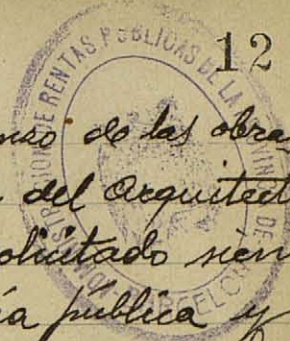 12
ADMINISTRACION DE RENTAS PUBLICAS DE LA PROVINCIA DE BARCELONA
de las obra
del arquitect
olicitado sien
ía pública y